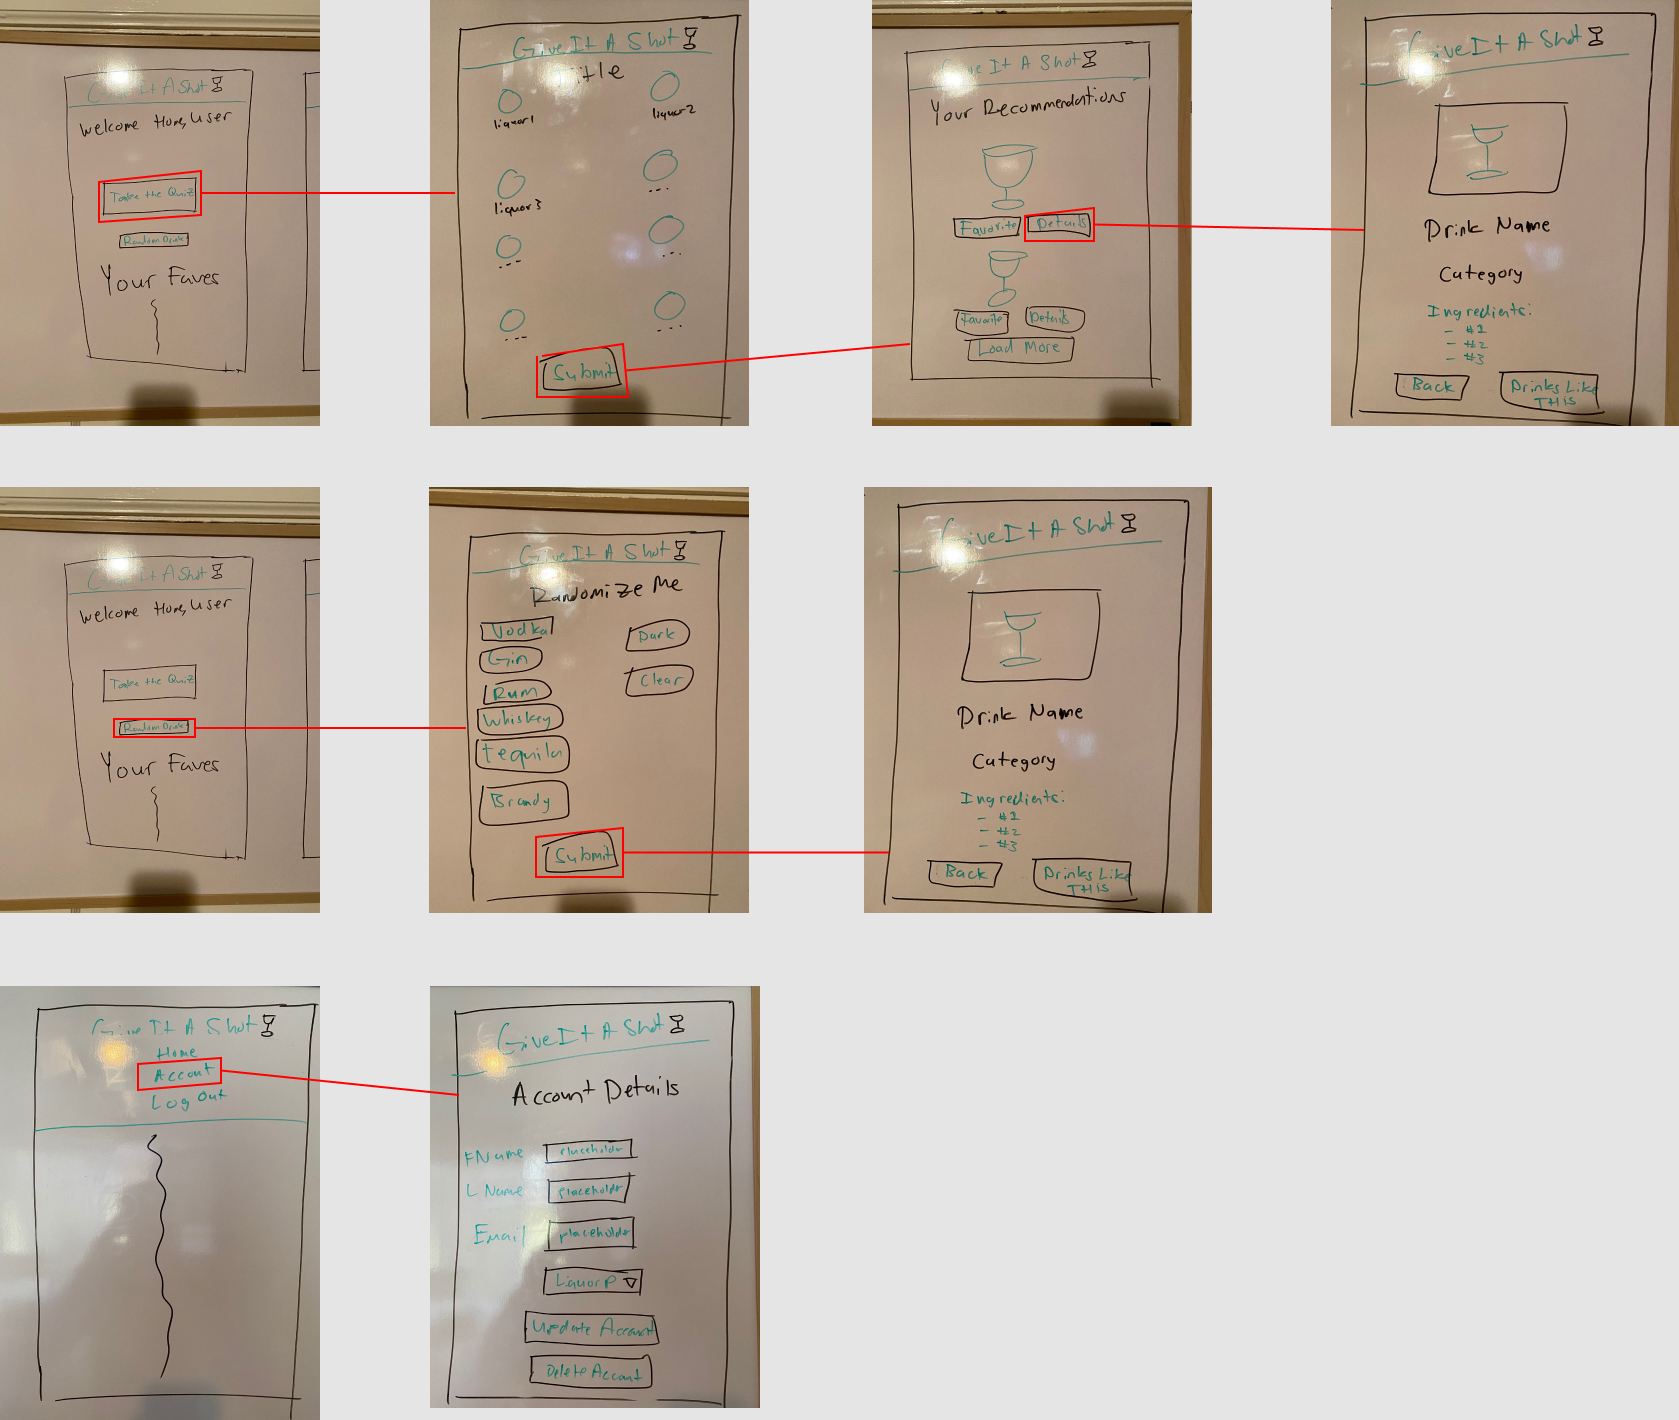 Give It A Shot
Welcome Home, User
Take the Quiz
Random Drink
Your Faves
Give It A Shot
Title
liquor1
liquor2
liquor3
Submit
Give It A Shot
Your Recommendations
Favorite Details
Favorite Details
Load More
Give It A Shot
Drink Name
Category
Ingredients:
- #1
- #2
- #3
Back
Drinks Like
THis
Give It A Shot
Welcome Home, User
Take the Quiz
Random Drink
Your Faves
Give It A Shot
Randomize Me
Vodka
Dark
Gin
Clear
Rum
Whiskey
tequila
Brandy
Submit
Give It A Shot
Drink Name
Category
Ingredients:
- #1
- #2
- #3
Back
Drinks Like
THis
Give It A Shot
Home
Account
Log Out
Give It A Shot
Account Details
FName placeholdr
L Name placeholdr
Email placeholdr
Liquor P
Update Account
Delete Account